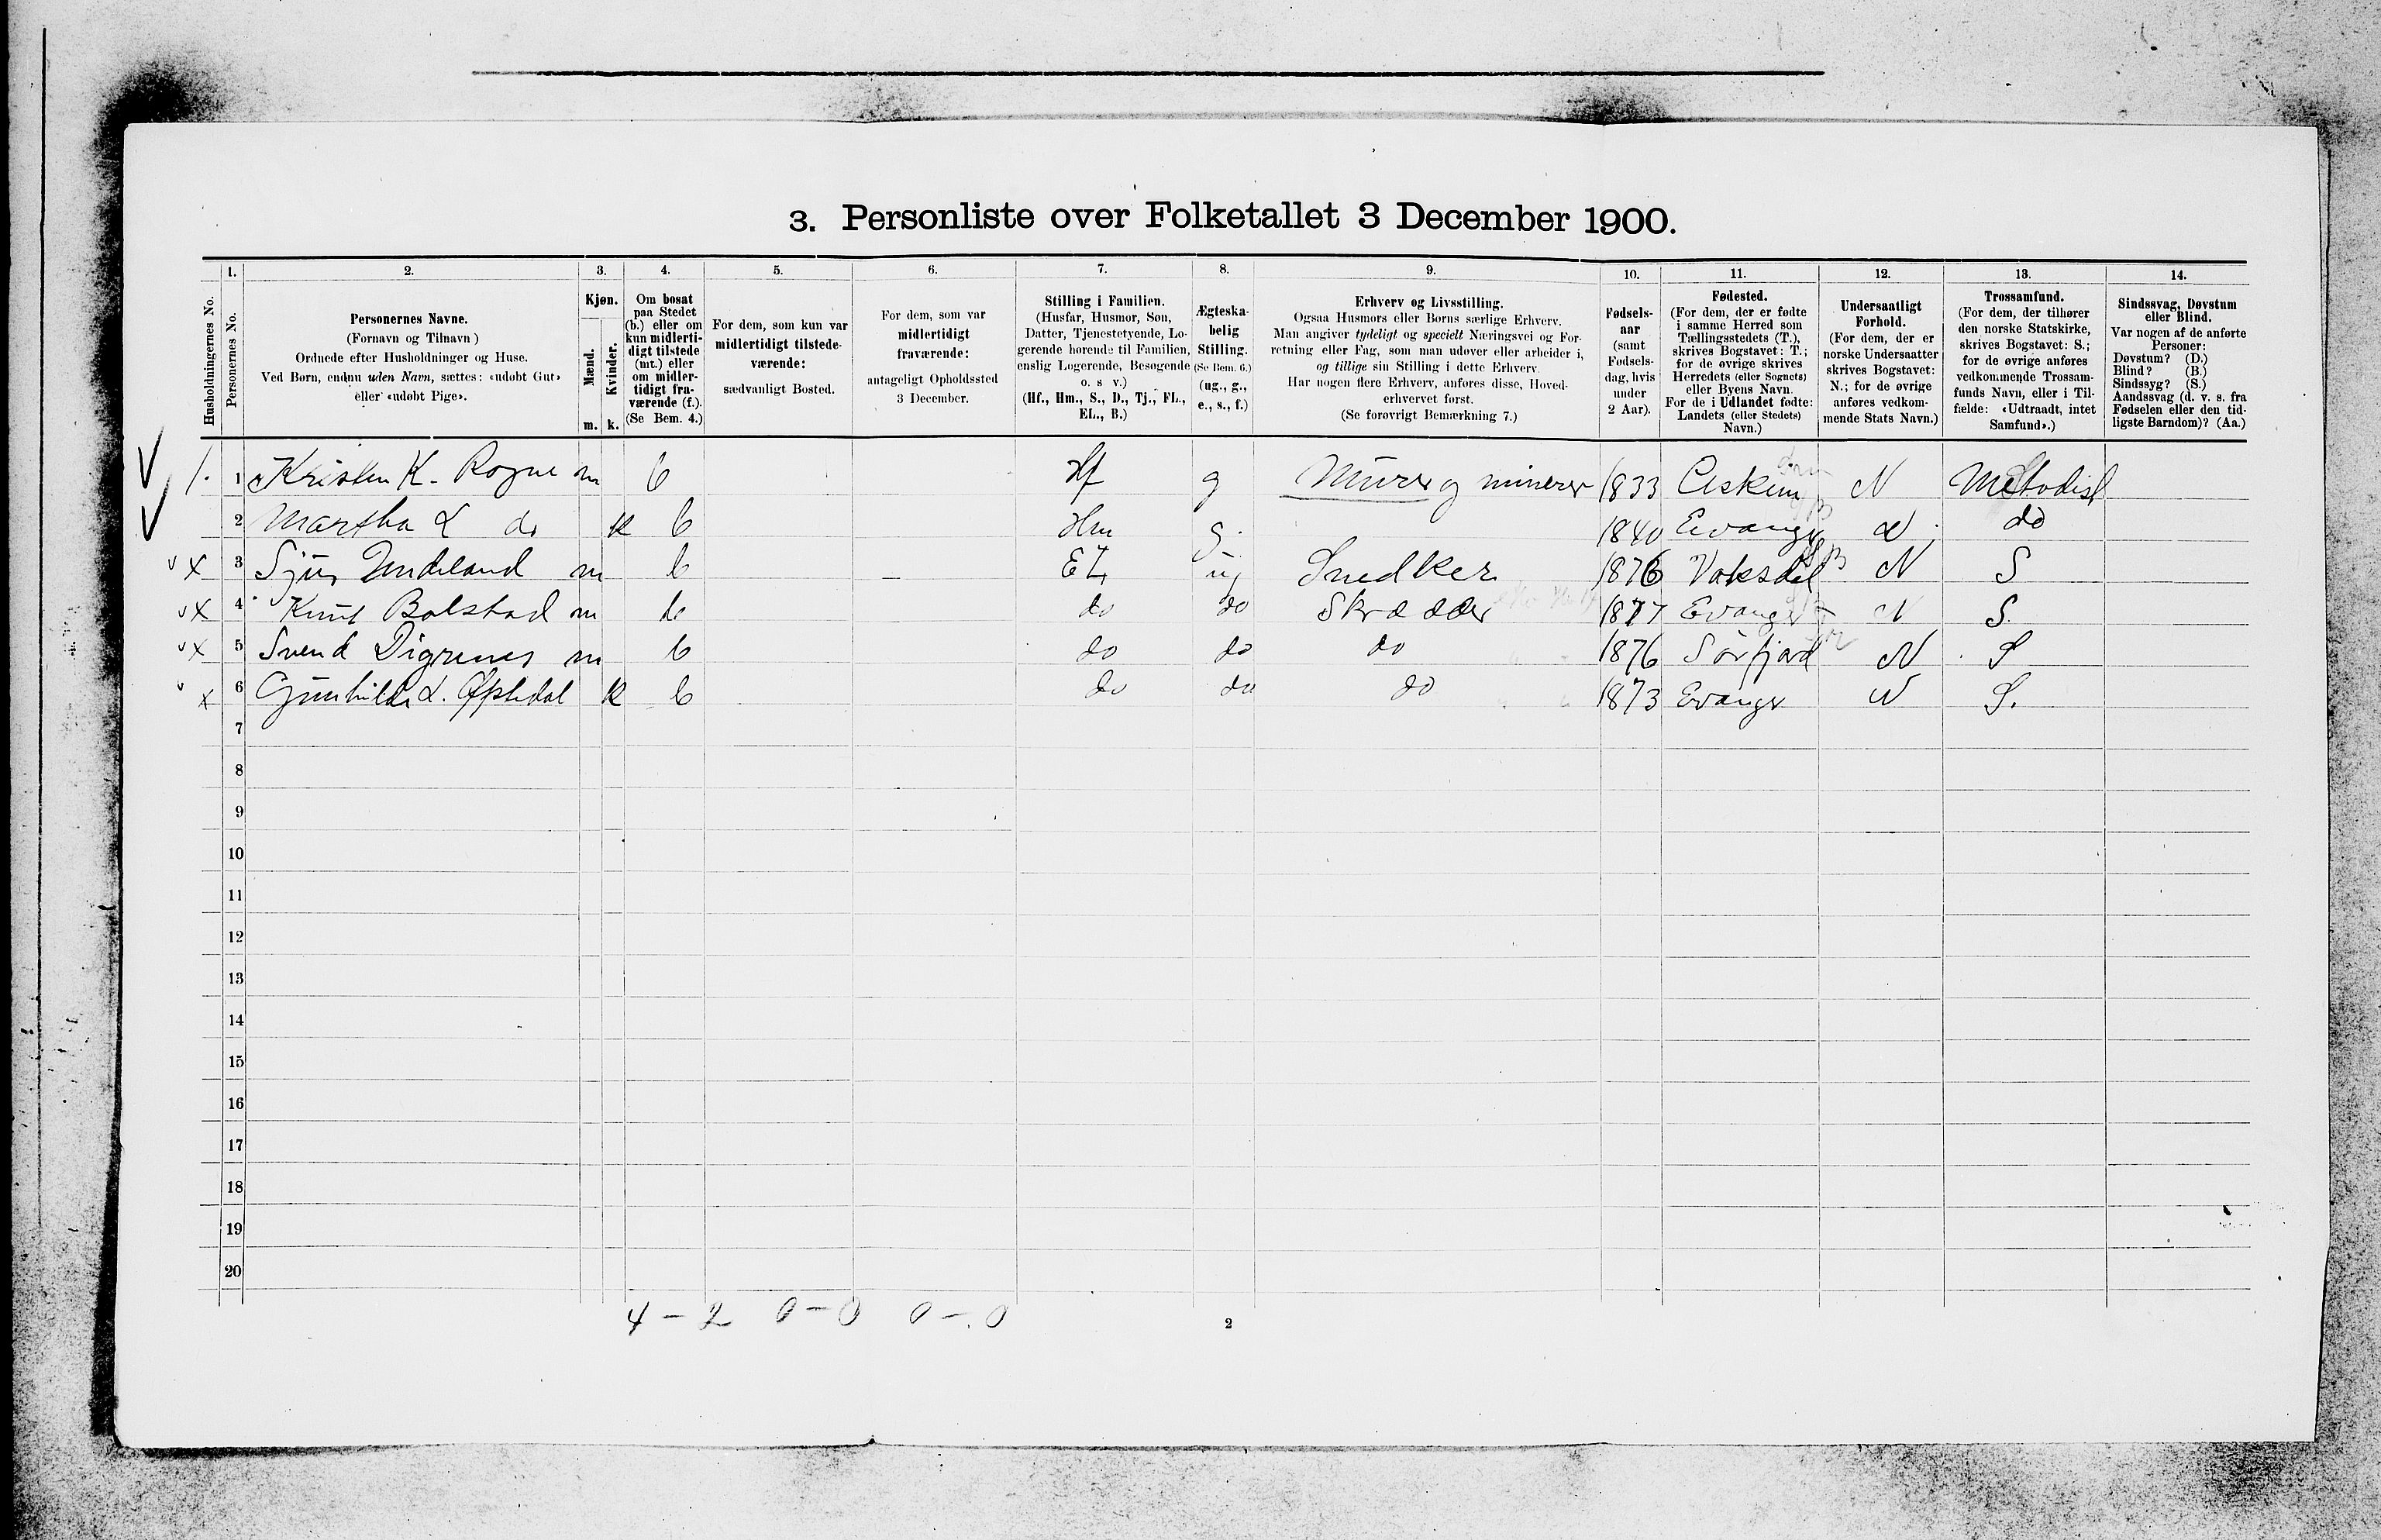 3. Personliste over Folketallet 3 December 1900.
Husholdningernes No.
1. Personernes No.
2. Personernes Navne.
(Fornavn og Tilnavn)
Ordnede efter Husholdninger og Huse.
Ved Børn, endnu uden Navn, sættes: «udøbt Gut»
eller «udøbt Pige».
3. Kjøn.
Mænd. Kvinder.
m. k.
4. Om bosat
paa Stedet
(b.) eller om
kun midlerti-
digt tilstede
(mt.) eller
om midler-
tidigt fra-
værende (f.).
(Se Bem. 4.)
5. For dem, som kun var
midlertidigt tilstede-
værende:
sædvanligt Bosted.
6. For dem, som var
midlertidigt
fraværende:
antageligt Opholdssted
3 December.
7. Stilling i Familien.
(Husfar, Husmor, Søn,
Datter, Tjenestetyende, Lo-
gerende hørende til Familien,
enslig Logerende, Besøgende
o. s v.)
(Hf., Hm., S., D., Tj., FL.,
EL., B.)
8. Ægteska-
belig
Stilling.
(Se Bem. 6.)
(ug., g.,
e., s., f.)
9. Erhverv og Livsstilling.
Ogsaa Husmors eller Børns særlige Erhverv.
Man angiver tydeligt og specielt Næringsvei og For-
retning eller Fag, som man udøver eller arbeider i,
og tillige sin Stilling i dette Erhverv.
Har nogen flere Erhverv, anføres disse, Hoved-
erhvervet først.
(Se forøvrigt Bemærkning 7.)
10. Fødsels-
aar
(samt
Fødsels-
dag, hvis
under
2 Aar).
11. Fødested.
(For dem, der er fødte
i samme Herred som
Tællingsstedets (T.),
skrives Bogstavet: T.;
for de øvrige skrives
Herredets (eller Sognets)
eller Byens Navn
For de i Udlandet fødte:
Landets (eller Stedets)
Navn.)
12. Undersaatligt
Forhold.
(For dem, der er
norske Undersaatter
skrives Bogstavet:
N.; for de øvrige
anføres vedkom-
mende Stats Navn.)
13. Trossamfund.
(For dem, der tilhører
den norske Statskirke,
skrives Bogstavet: S.;
for de øvrige anføres
vedkommende Trossam-
funds Navn, eller i Til-
fælde: «Udtraadt, intet
Samfund».)
14. Sindssvag, Døvstum
eller Blind.
Var nogen af de anførte
Personer:
Døvstum? (D.)
Blind? (B.)
Sindssyg? (S.)
Aandssvag (d. v. s. fra
Fødselen eller den tid-
ligste Barndom)? (Aa.)
1. 1 Kristen K. Rogne m b Hf g Murer og minerer 1833 Askim N Metodist
2 Martha L do k b Hm g. 1840 Evanger N do
x 3 Sjur Undeland m b EL ug Snedker 1876 Vaksdal N S
x 4 Knut Bolstad m b do do Skrædder 1877 Evanger N S.
x 5 Svend Digrenes m b do do do 1876 Sørfjord N S
x 6 Gunhilda L. Opstedal k b do do do 1873 Evanger N S.
7
8
9
10
11
12
13
14
15
16
17
18
19
20
4 - 2 0 - 0 0 - 0
2